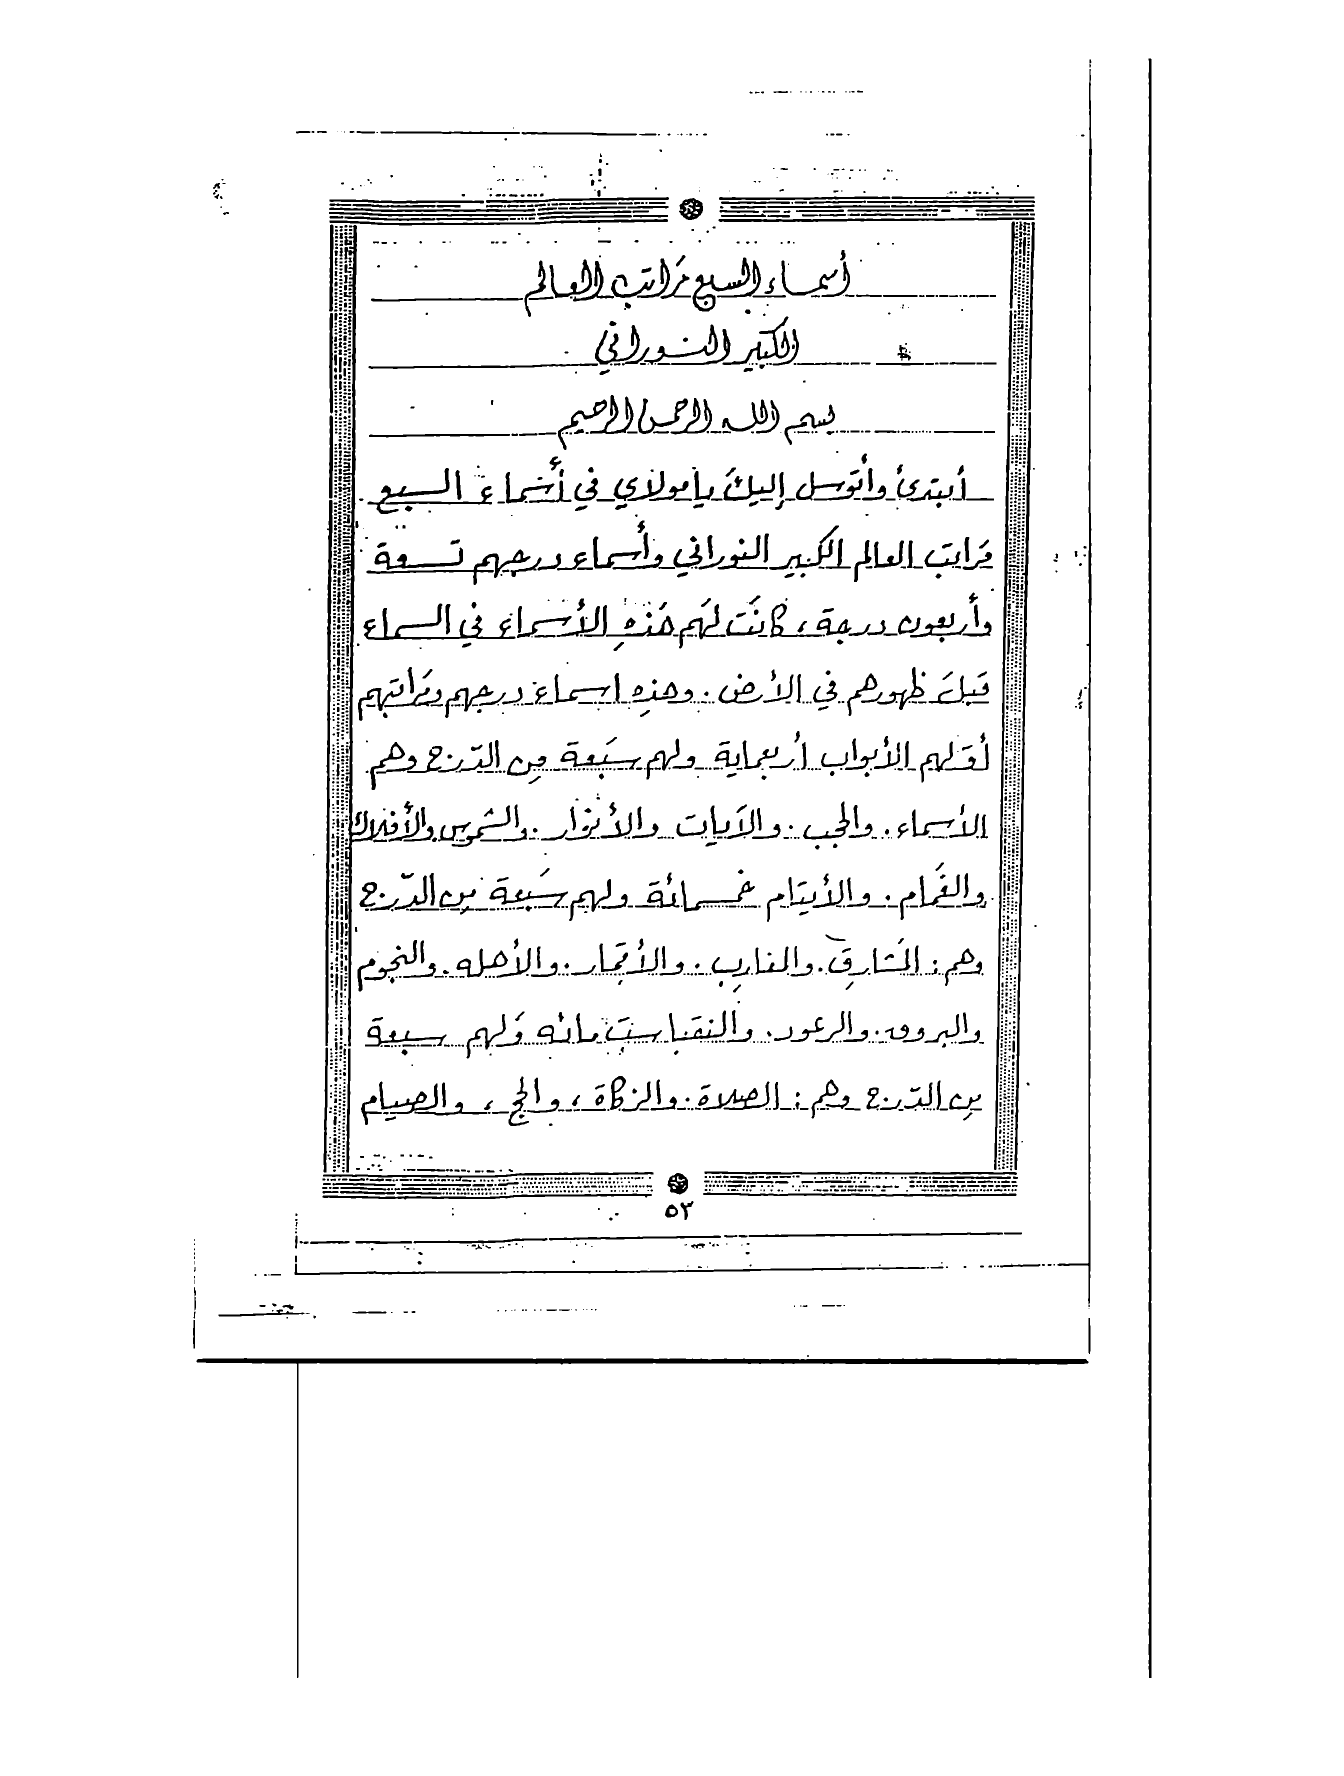 أسماء السبع مَراتب العالم
الكبير النوراني
بسم الله الرحمن الرحيم
أبتدئ وأتوسل إليكَ يامولاي في أسْماء السبع
مَراتب العالم الكبير النوراني وأسماء درجهم تسعة
وأربعون درجة ، كانَت لهَم هَذهِ الأسماء في السماء
قبلَ ظهورهم في الأرض . وهذهِ اسماء درجهم ومَراتبهم
أوَلهم الأبواب أربعماية ولهم سبَعة مِن الدّرج وهم
الأسماء . والحجب . والآيات والأنوار . والشموس والأفلاك
والغَمام . والأيتام خمسمائة ولهم سَبعة مِن الدّرج
وهم : المَشارِق . والمغارِب . والأقمار . والأهله . والنجوم
والبروق . والرعود . والنقبا ست مائه وَلهم سبعة
مِن الدّرج وهم : الصلاة . والزكاة ، والحج ، والصيام
٥٣